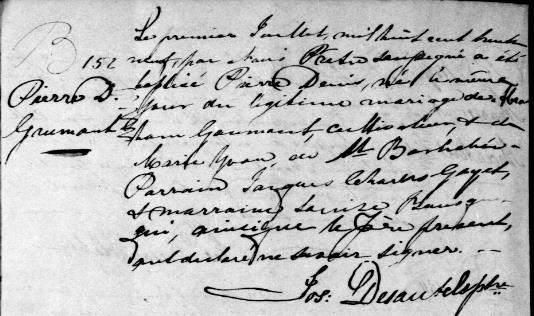 B 152
Pierre D.
Grumont
Le premier Juillet, mil huit cent trente
neuf, par Nous Prêtre soussigné a été
baptisé Pierre Denis, né le même
jour du légitime mariage de
Gaumont, cultivateur, & de
Marie Yvon, de St. Barthelémi
Parrain Jacques Charles Gayet,
& marraine Louise
qui, ainsi que le père présent,
ont déclaré ne savoir signer.
Jos: Desautels ptre